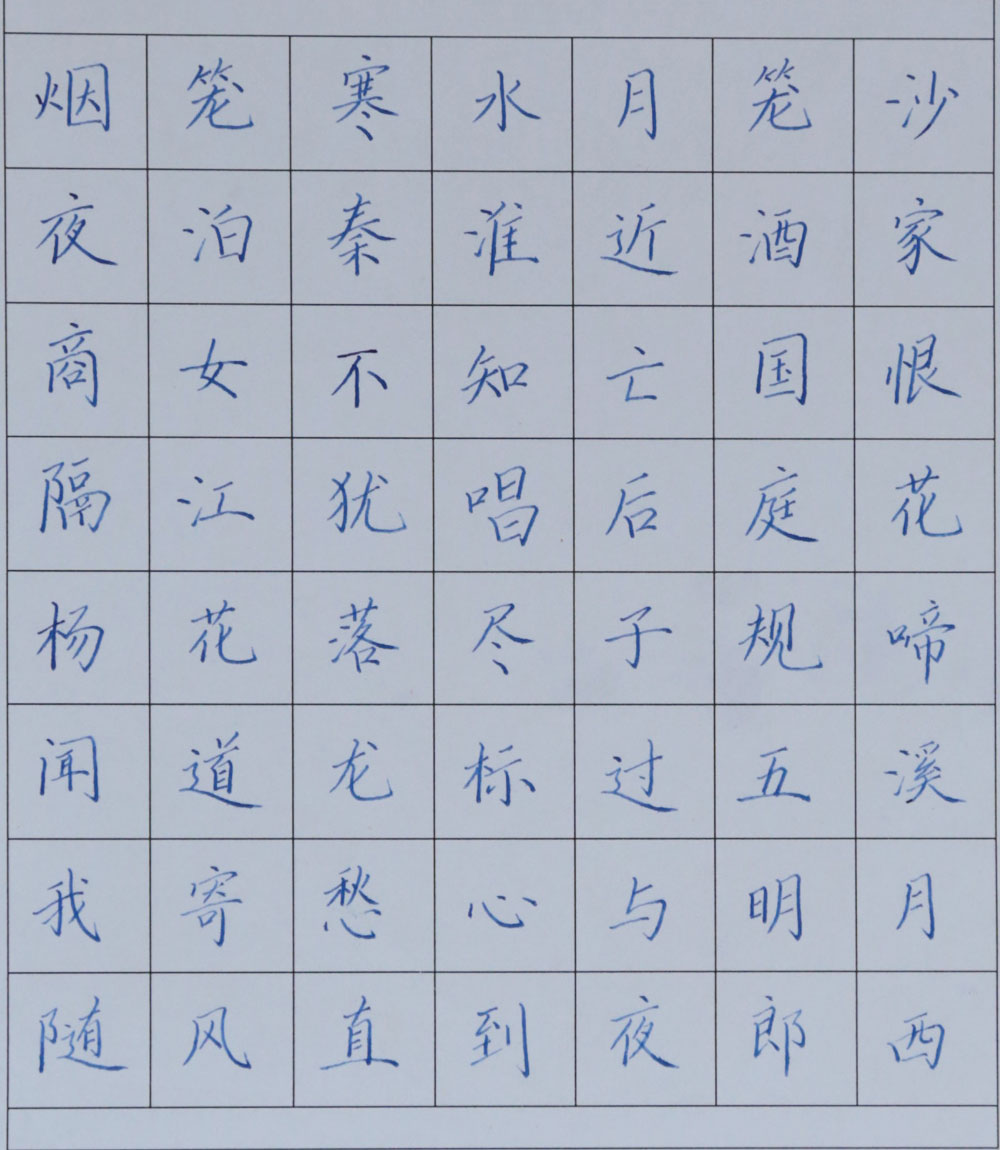 烟笼寒水月笼沙
夜泊秦淮近酒家
商女不知亡国恨
隔江犹唱后庭花
杨花落尽子规啼
闻道龙标过五溪
我寄愁心与明月
随风直到夜郎西